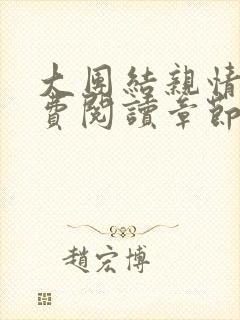 大團結親情
費閱讀章節
趙宏博